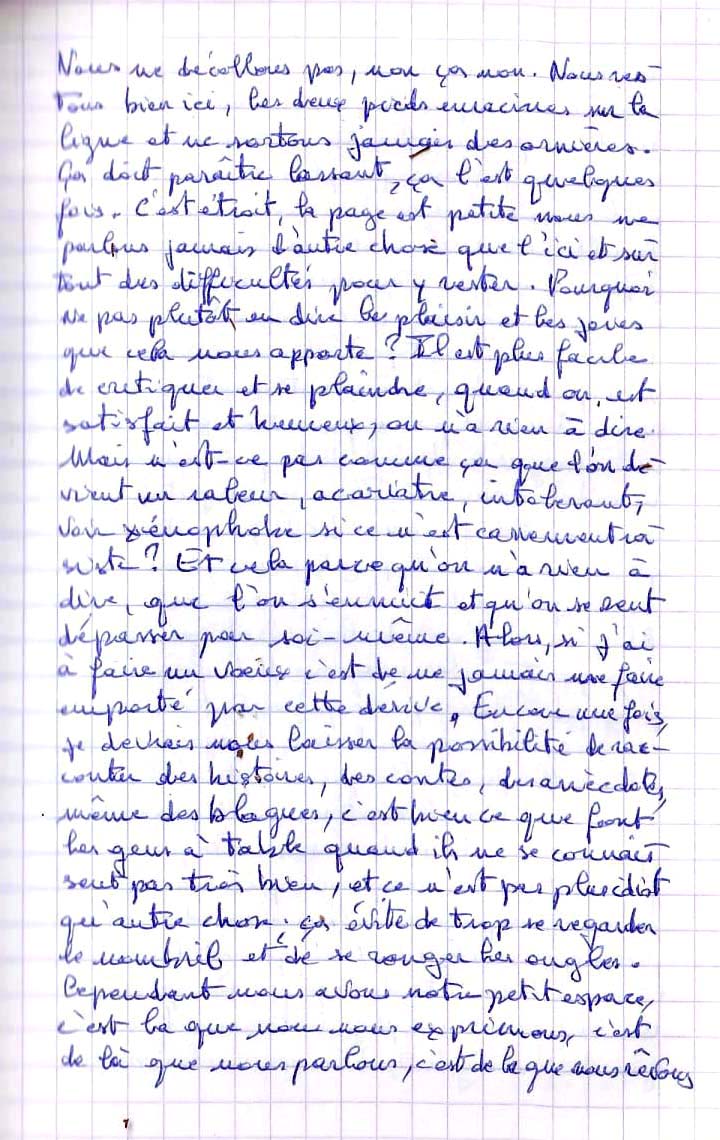 Nous ne décollons pas, non ça non. Nous res-
tons bien ici, les deux pieds enracinés sur la
ligne et ne sortons jamais des ornières.
Ça doit paraître lassant, ça l'est quelques
fois. C'est étroit, la page est petite nous ne
parlons jamais d'autre chose que l'ici et sur
tout des difficultés pour y rester. Pourquoi
ne pas plutôt en dire les plaisir et les joies
que cela nous apporte ? Il est plus facile
de critiquer et se plaindre, quand on est
satisfait et heureux, on n'a rien à dire.
Mais n'est-ce pas comme ça que l'on de-
vient un raleur, acariatre, intolerant,
voir xénophobe si ce n'est carrement ra
siste ? Et cela parce qu'on n'a rien à
dire, que l'on s'ennuit et qu'on se sent
dépasser par soi-même. Alors, si j'ai
à faire un voeux c'est de ne jamais me faire
emporté par cette dérive. Encore une fois,
je devrais nous laisser la possibilité de rac-
conter des histoires, des contes, des anecdotes,
même des blagues, c'est bien ce que font
les gens à table quand ils ne se connais
sent pas très bien, et ce n'est pas plus idiot
qu'autre chose. ça évite de trop se regarder
le nombril et de se ronger les ongles.
Cependant nous avons notre petit espace,
c'est la que nous nous exprimons, c'est
de là que nous parlons, c'est de la que nous rêvons